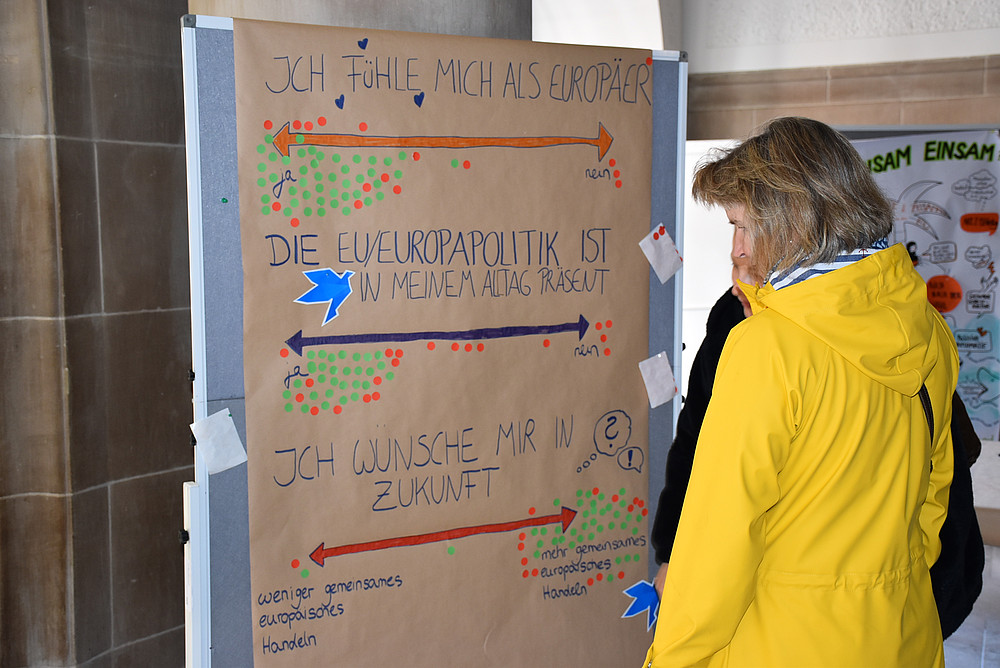 ICH FÜHLE MICH ALS EUROPÄER
ja
nein
DIE EU/EUROPAPOLITIK IST
IN MEINEM ALTAG PRÄSENT
ja
nein
ICH WÜNSCHE MIR IN
ZUKUNFT
?
!
weniger gemeinsames
europäisches
Handeln
mehr gemeinsames
europäisches
Handeln
NSAM EINSAM